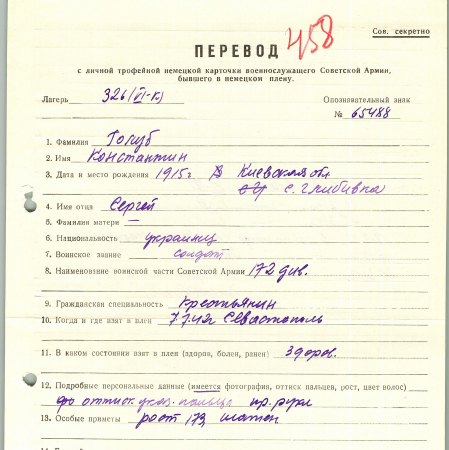 458
Сов. секретно
ПЕРЕВОД
с личной трофейной немецкой карточки военнослужащего Советской Армии,
бывшего в немецком плену.
Лагерь 326 (VI-К)
Опознавательный знак
№ 65488
1. Фамилия Голуб
2. Имя Константин
3. Дата и место рождения 1915 г Киевская обл
с. Глибивка
4. Имя отца Сергей
5. Фамилия матери —
6. Национальность украинец
7. Воинское звание солдат
8. Наименование воинской части Советской Армии 172 див.
9. Гражданская специальность крестьянин
10. Когда и где взят в плен 7.7.42г Севастополь
11. В каком состоянии взят в плен (здоров, болен, ранен) Здоров.
12. Подробные персональные данные (имеется фотография, оттиск пальцев, рост, цвет волос)
оттиск указ. пальца пр. руки
13. Особые приметы рост 173, шатен